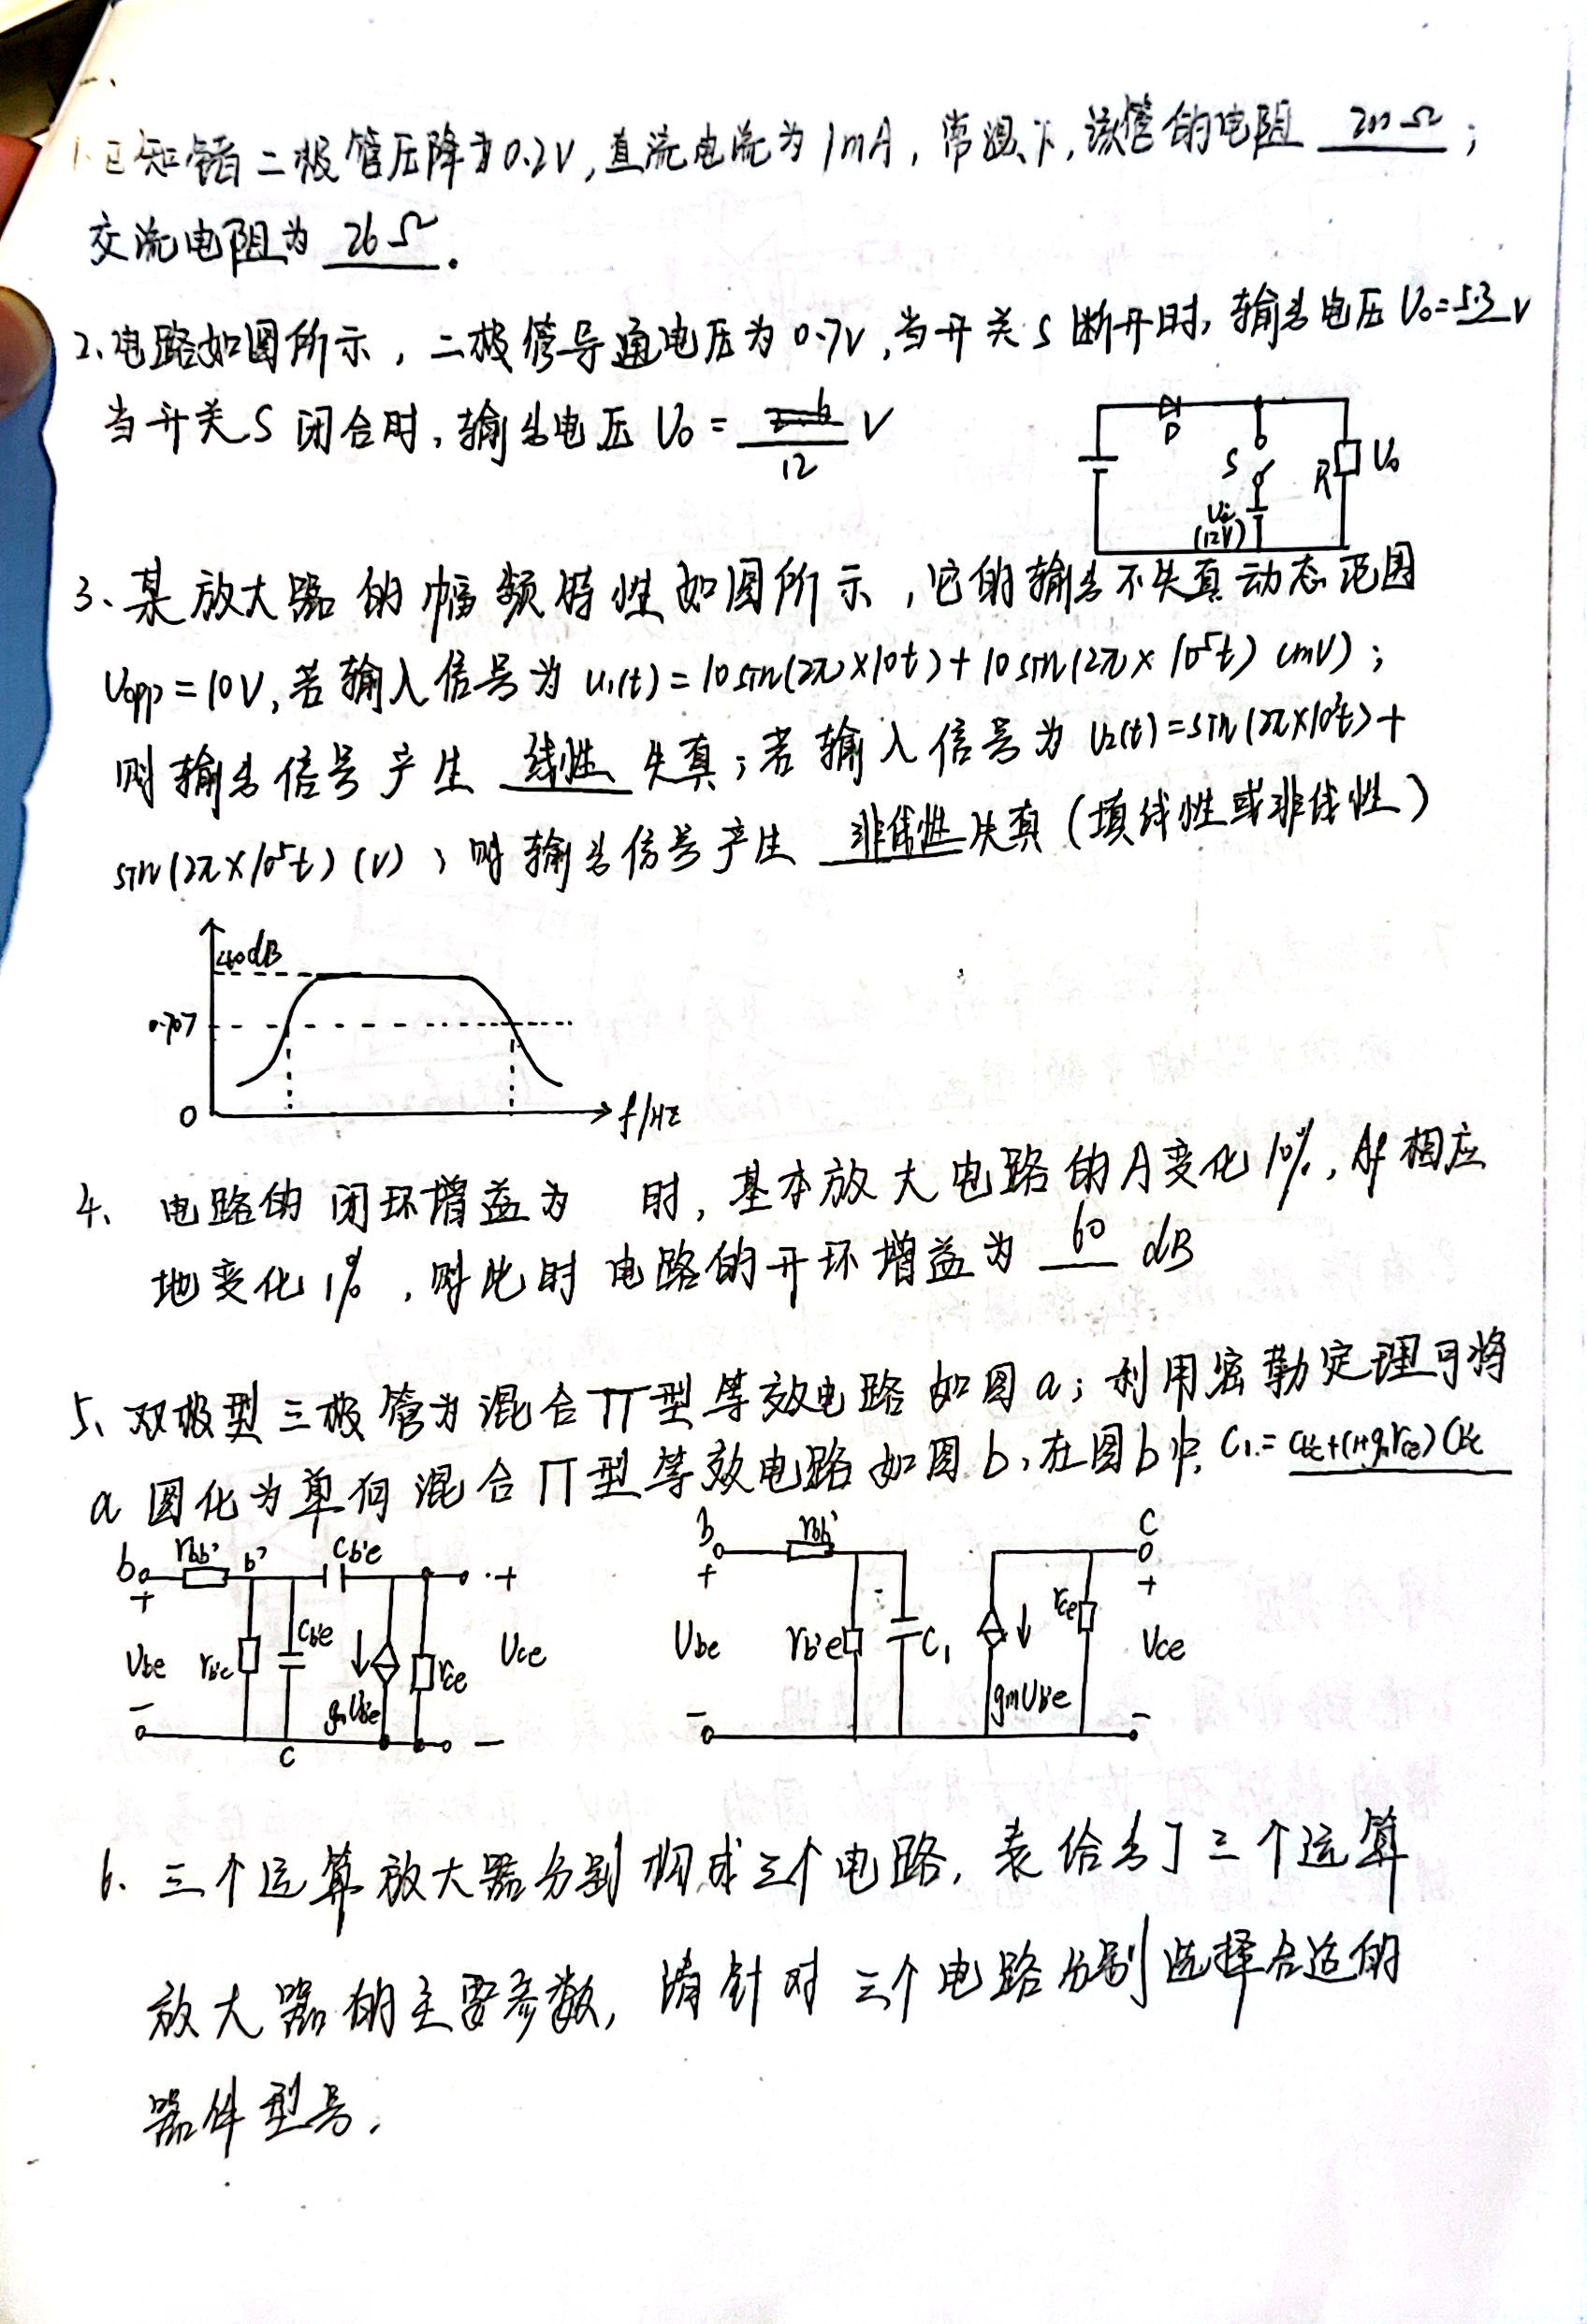 一、
1.已知锗二极管压降为0.2V,直流电流为1mA,常温下,该管的电阻 200Ω;
交流电阻为 26Ω.
2、电路如图所示,二极管导通电压为0.7V,当开关S断开时,输出电压U₀=5.3V
当开关S闭合时,输出电压U₀= 12 V
D
S
R
U₀
(12V)
3、某放大器的幅频特性如图所示,它的输出不失真动态范围
Uopp=10V,若输入信号为u₁(t)=10sin(2π×10t)+10sin(2π×10⁵t)(mV);
则输出信号产生 线性 失真;若输入信号为u₂(t)=sin(2π×10³t)+
sin(2π×10⁵t)(V),则输出信号产生 非线性失真(填线性或非线性)
40dB
0.707
0
f/HZ
4、电路的闭环增益为 时,基本放大电路的A变化10%,Af相应
地变化1%,则此时电路的开环增益为 60 dB
5、双极型三极管为混合Π型等效电路如图a;利用密勒定理可将
a图化为单向混合Π型等效电路如图b,在图b中,C₁=
b rbb' b' Cb'e +
+
Ube rb'e Cb'e gmUb'e rce Uce
- c -
b rbb' C
+ +
Ube rb'e C₁ gmUb'e rce Uce
- -
6、三个运算放大器分别构成三个电路,表给出了三个运算
放大器的主要参数,请针对三个电路分别选择合适的
器件型号.